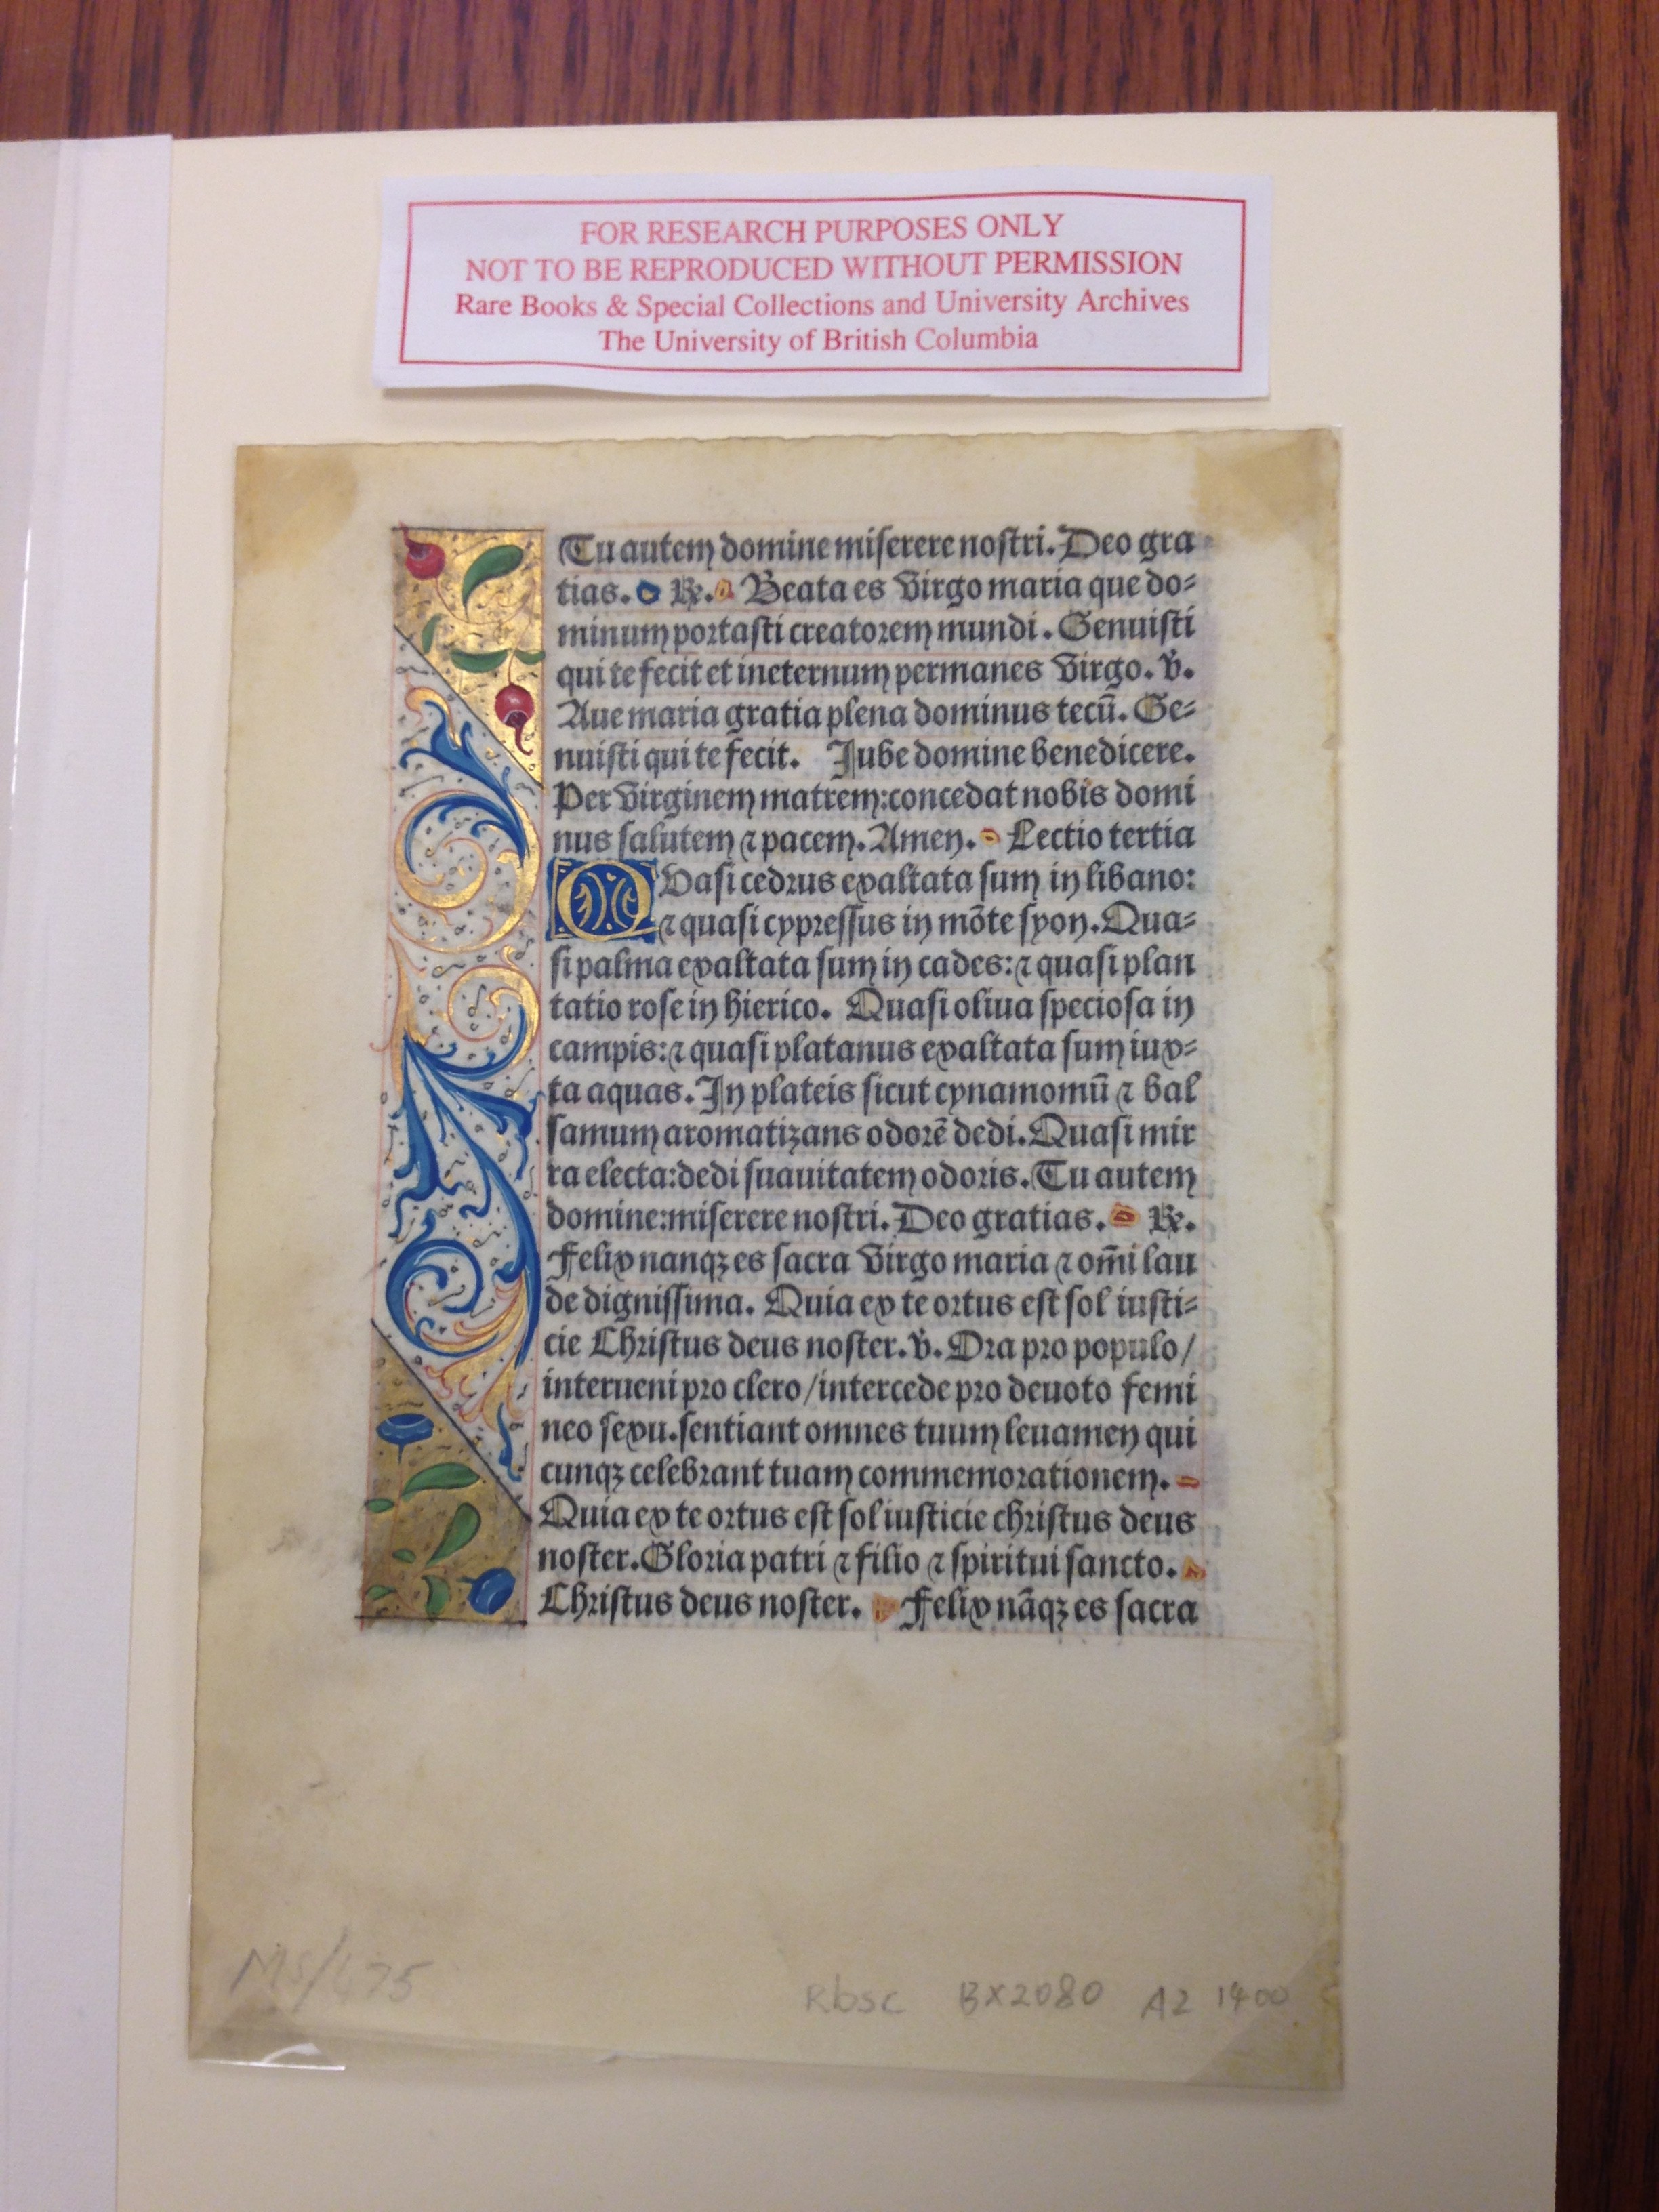 FOR RESEARCH PURPOSES ONLY
NOT TO BE REPRODUCED WITHOUT PERMISSION
Rare Books & Special Collections and University Archives
The University of British Columbia
Tu autem domine miserere nostri. Deo gra
tias. ℟. Beata es virgo maria que do-
minum portasti creatorem mundi. Genuisti
qui te fecit et ineternum permanes virgo. ℣.
Aue maria gratia plena dominus tecū. Ge-
nuisti qui te fecit. Jube domine benedicere.
Per virginem matrem: concedat nobis domi
nus salutem ⁊ pacem. Amen. Lectio tertia
QVasi cedrus exaltata sum in libano:
⁊ quasi cypressus in mōte syon. Qua-
si palma exaltata sum in cades: ⁊ quasi plan
tatio rose in hierico. Quasi oliua speciosa in
campis: ⁊ quasi platanus exaltata sum iux-
ta aquas. In plateis sicut cynamomū ⁊ bal
samum aromatizans odorē dedi. Quasi mir
ra electa: dedi suauitatem odoris. Tu autem
domine: miserere nostri. Deo gratias. ℟.
Felix nanqꝫ es sacra virgo maria ⁊ om̄i lau
de dignissima. Quia ex te ortus est sol iusti-
cie Christus deus noster. ℣. Ora pro populo/
interueni pro clero/ intercede pro deuoto femi
neo sexu. sentiant omnes tuum leuamen qui
cunqꝫ celebrant tuam commemorationem.
Quia ex te ortus est sol iusticie christus deus
noster. Gloria patri ⁊ filio ⁊ spiritui sancto.
Christus deus noster. Felix nāqꝫ es sacra
MS/475
Rbsc BX2080 A2 1400